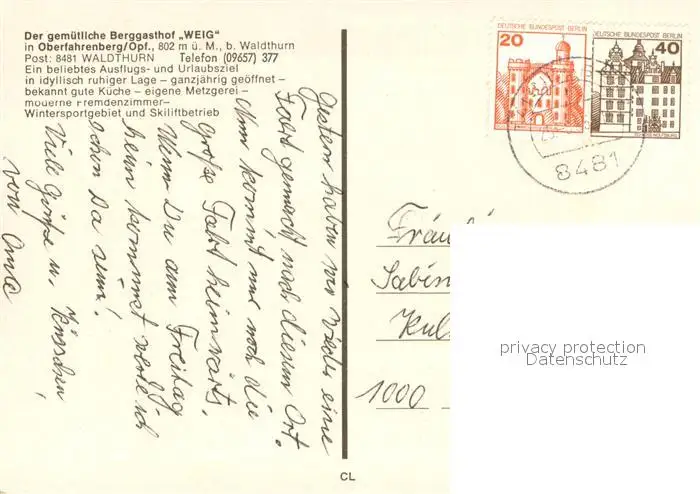 Der gemütliche Berggasthof „WEIG"
in Oberfahrenberg/Opf., 802 m ü. M., b. Waldthurn
Post: 8481 WALDTHURN Telefon (09657) 377
Ein beliebtes Ausflugs- und Urlaubsziel
in idyllisch ruhiger Lage – ganzjährig geöffnet –
bekannt gute Küche – eigene Metzgerei –
moderne Fremdenzimmer–
Wintersportgebiet und Skiliftbetrieb
Gestern haben wir wieder eine
Fahrt gemacht nach diesem Ort.
Nun kommt nur noch die
große Fahrt heimwärts.
Wenn Du am Freitag
heim kommst werde ich
schon da sein!
Viele Grüße u. Küsschen,
von Oma
DEUTSCHE BUNDESPOST BERLIN
20
DEUTSCHE BUNDESPOST BERLIN
40
8481
Fräul
Sabin
Kul
1000
privacy protection
Datenschutz
CL